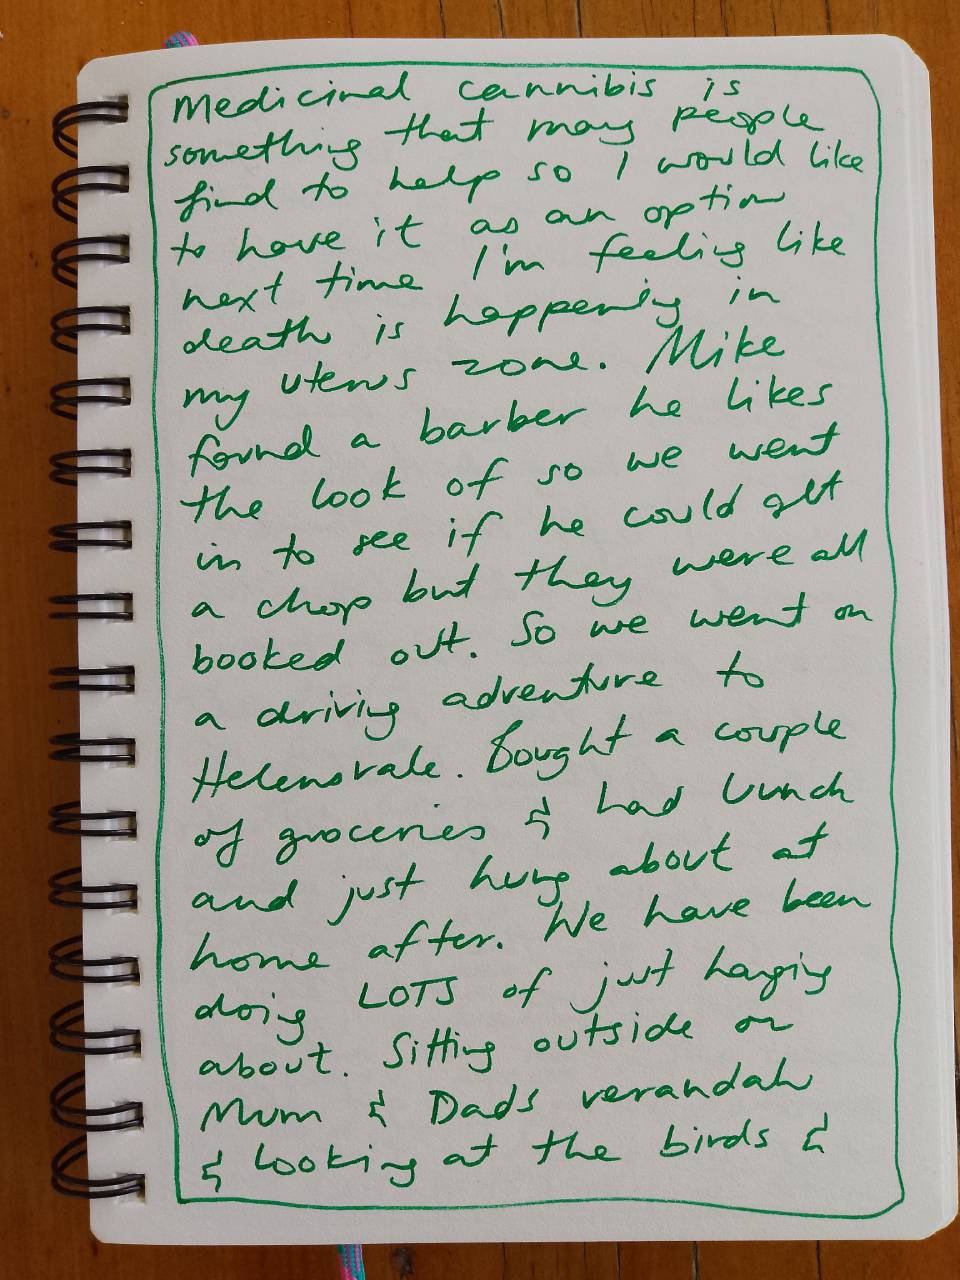 Medicinal cannibis is
something that many people
find to help so I would like
to have it as an option
next time I'm feeling like
death is happening in
my uterus zone. Mike
found a barber he likes
the look of so we went
in to see if he could get
a chop but they were all
booked out. So we went on
a driving adventure to
Helensvale. Bought a couple
of groceries & had lunch
and just hung about at
home after. We have been
doing LOTS of just hanging
about. Sitting outside on
Mum & Dads verandah
& looking at the birds &